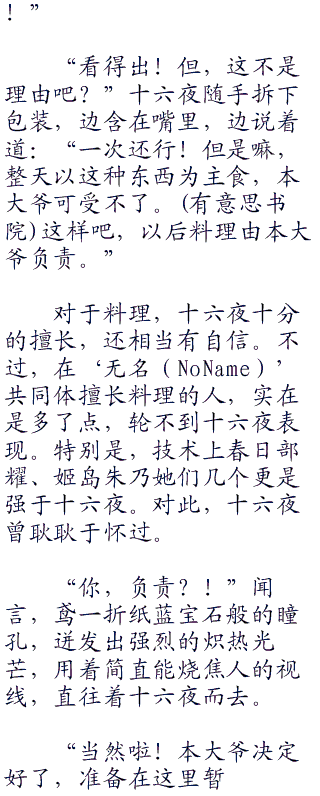 ！”
“看得出！但，这不是
理由吧？”十六夜随手拆下
包装，边含在嘴里，边说着
道：“一次还行！但是嘛，
整天以这种东西为主食，本
大爷可受不了。(有意思书
院)这样吧，以后料理由本大
爷负责。”
对于料理，十六夜十分
的擅长，还相当有自信。不
过，在‘无名（NoName）’
共同体擅长料理的人，实在
是多了点，轮不到十六夜表
现。特别是，技术上春日部
耀、姬岛朱乃她们几个更是
强于十六夜。对此，十六夜
曾耿耿于怀过。
“你，负责？！”闻
言，鸢一折纸蓝宝石般的瞳
孔，迸发出强烈的炽热光
芒，用着简直能烧焦人的视
线，直往着十六夜而去。
“当然啦！本大爷决定
好了，准备在这里暂